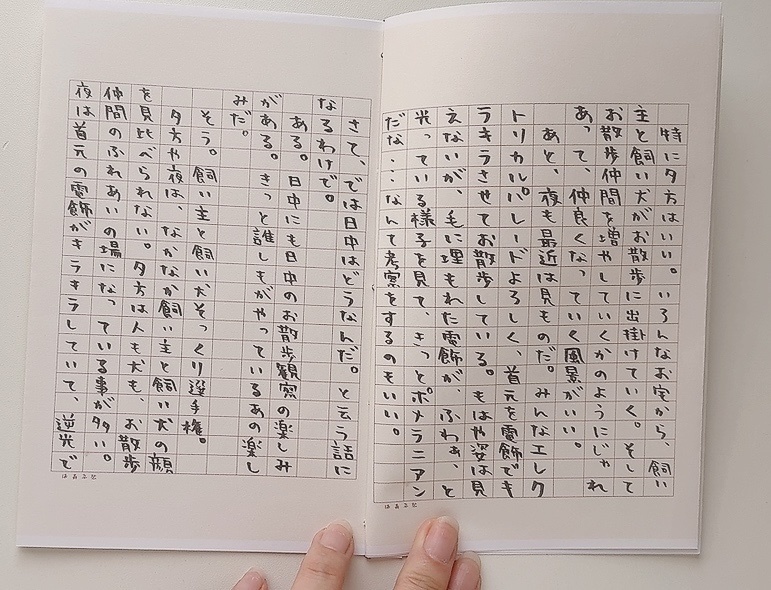 特に夕方はいい。いろんなお宅から、飼い
主と飼い犬がお散歩に出掛けていく。そして
お散歩仲間を増やしていくかのようにじゃれ
あって、仲良くなっていく風景がいい。
あと、夜も最近は見ものだ。みんなエレク
トリカルパレードよろしく、首元を電飾でキ
ラキラさせてお散歩している。もはや姿は見
えないが、毛に埋もれた電飾が、ふわぁ、と
光っている様子を見て、きっとポメラニアン
だな‥なんて考察をするのもいい。
さて、では日中はどうなんだ。と云う話に
なるわけで。
ある。日中にも日中のお散歩観察の楽しみ
がある。きっと誰しもがやっているあの楽し
みだ。
そう。飼い主と飼い犬そっくり選手権。
夕方や夜は、なかなか飼い主と飼い犬の顔
を見比べられない。夕方は人も犬も、お散歩
仲間のふれあいの場になっている事が多い。
夜は首元の電飾がキラキラしていて、逆光で